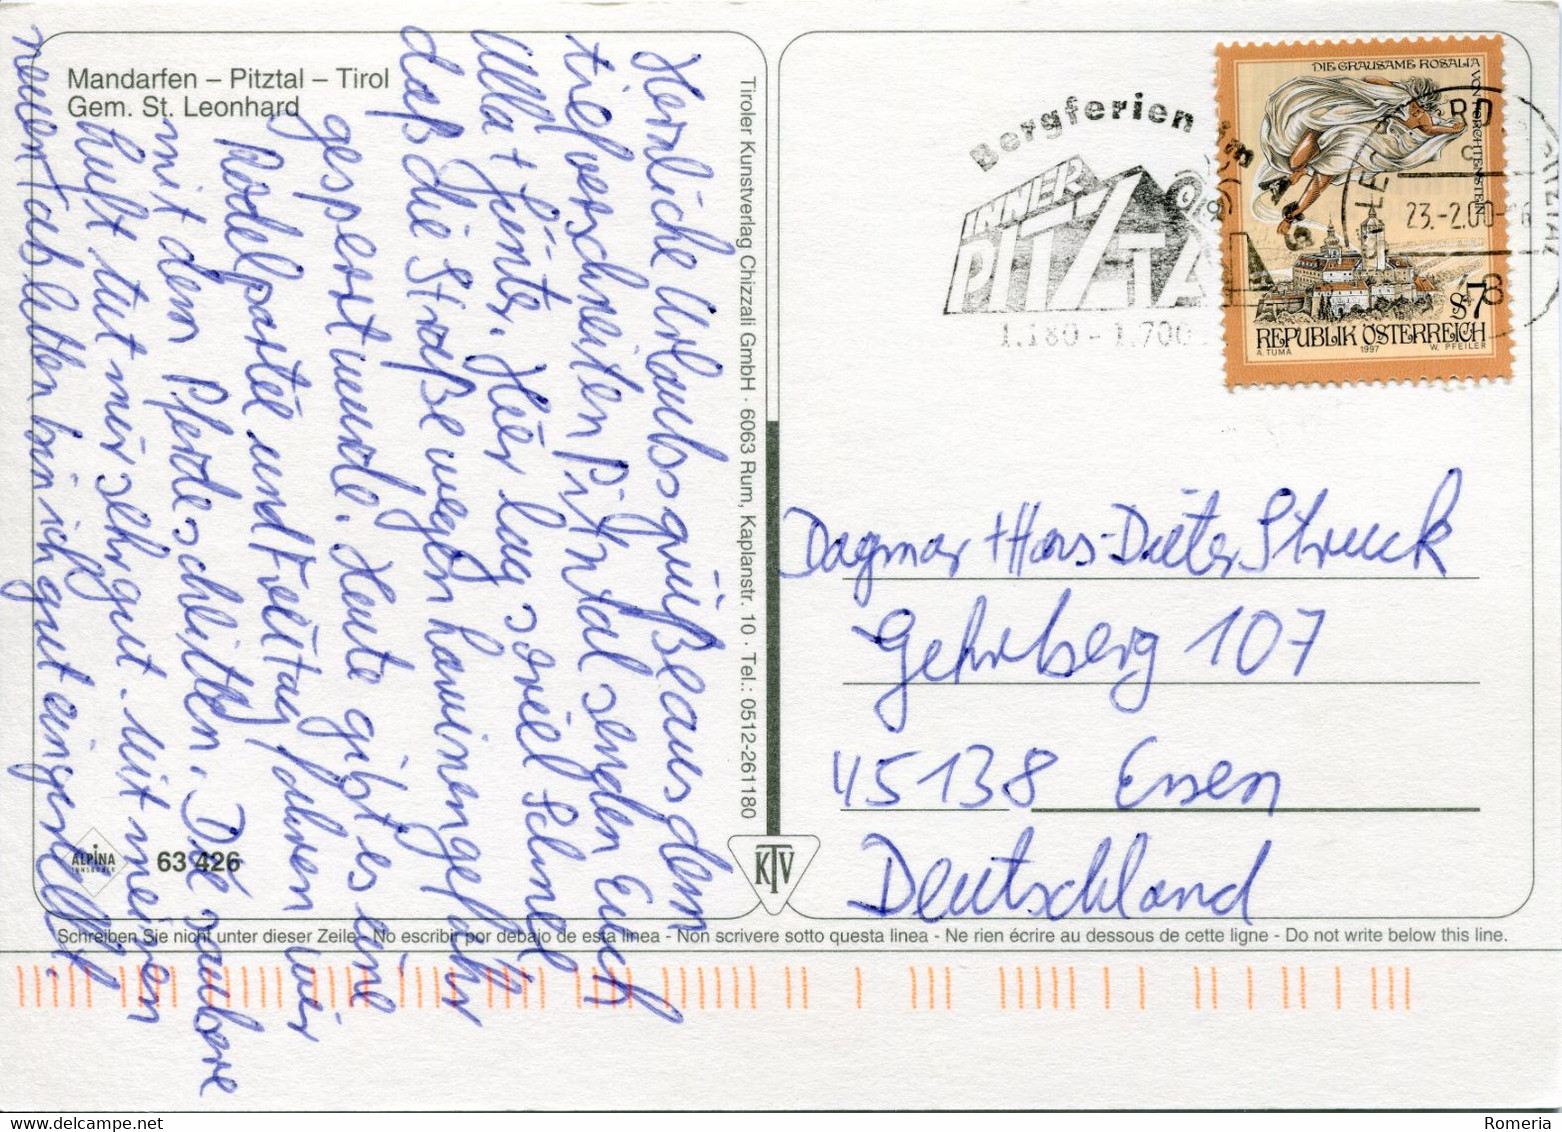 Mandarfen – Pitztal – Tirol
Gem. St. Leonhard
Herzliche Urlaubsgrüße aus dem
tiefverschneiten Pitztal senden Euch
Ulla + Günter. Hier lag soviel Schnee
daß die Straße wegen Lawinengefahr
gesperrt wurde. Heute gibt es eine
Rodelpartie und Freitag fahren wir
mit dem Pferdeschlitten. Die saubere
Luft tut mir sehr gut. Mit meinen
neuen Tabletten bin ich gut eingestellt.
ALPINA
INNSBRUCK
63 426
Tiroler Kunstverlag Chizzali GmbH · 6063 Rum, Kaplanstr. 10 · Tel.: 0512-261180
KTV
Bergferien im
INNER
PITZTAL
1.180 - 1.700
23.-2.00-16
8
DIE GRAUSAME ROSALIA
VON FORCHTENSTEIN
S 7
REPUBLIK ÖSTERREICH
A. TUMA 1997 W. PFEILER
Dagmar + Hans-Dieter Struck
Gehrberg 107
45138 Essen
Deutschland
Schreiben Sie nicht unter dieser Zeile - No escribir por debajo de esta linea - Non scrivere sotto questa linea - Ne rien écrire au dessous de cette ligne - Do not write below this line.
Romeria